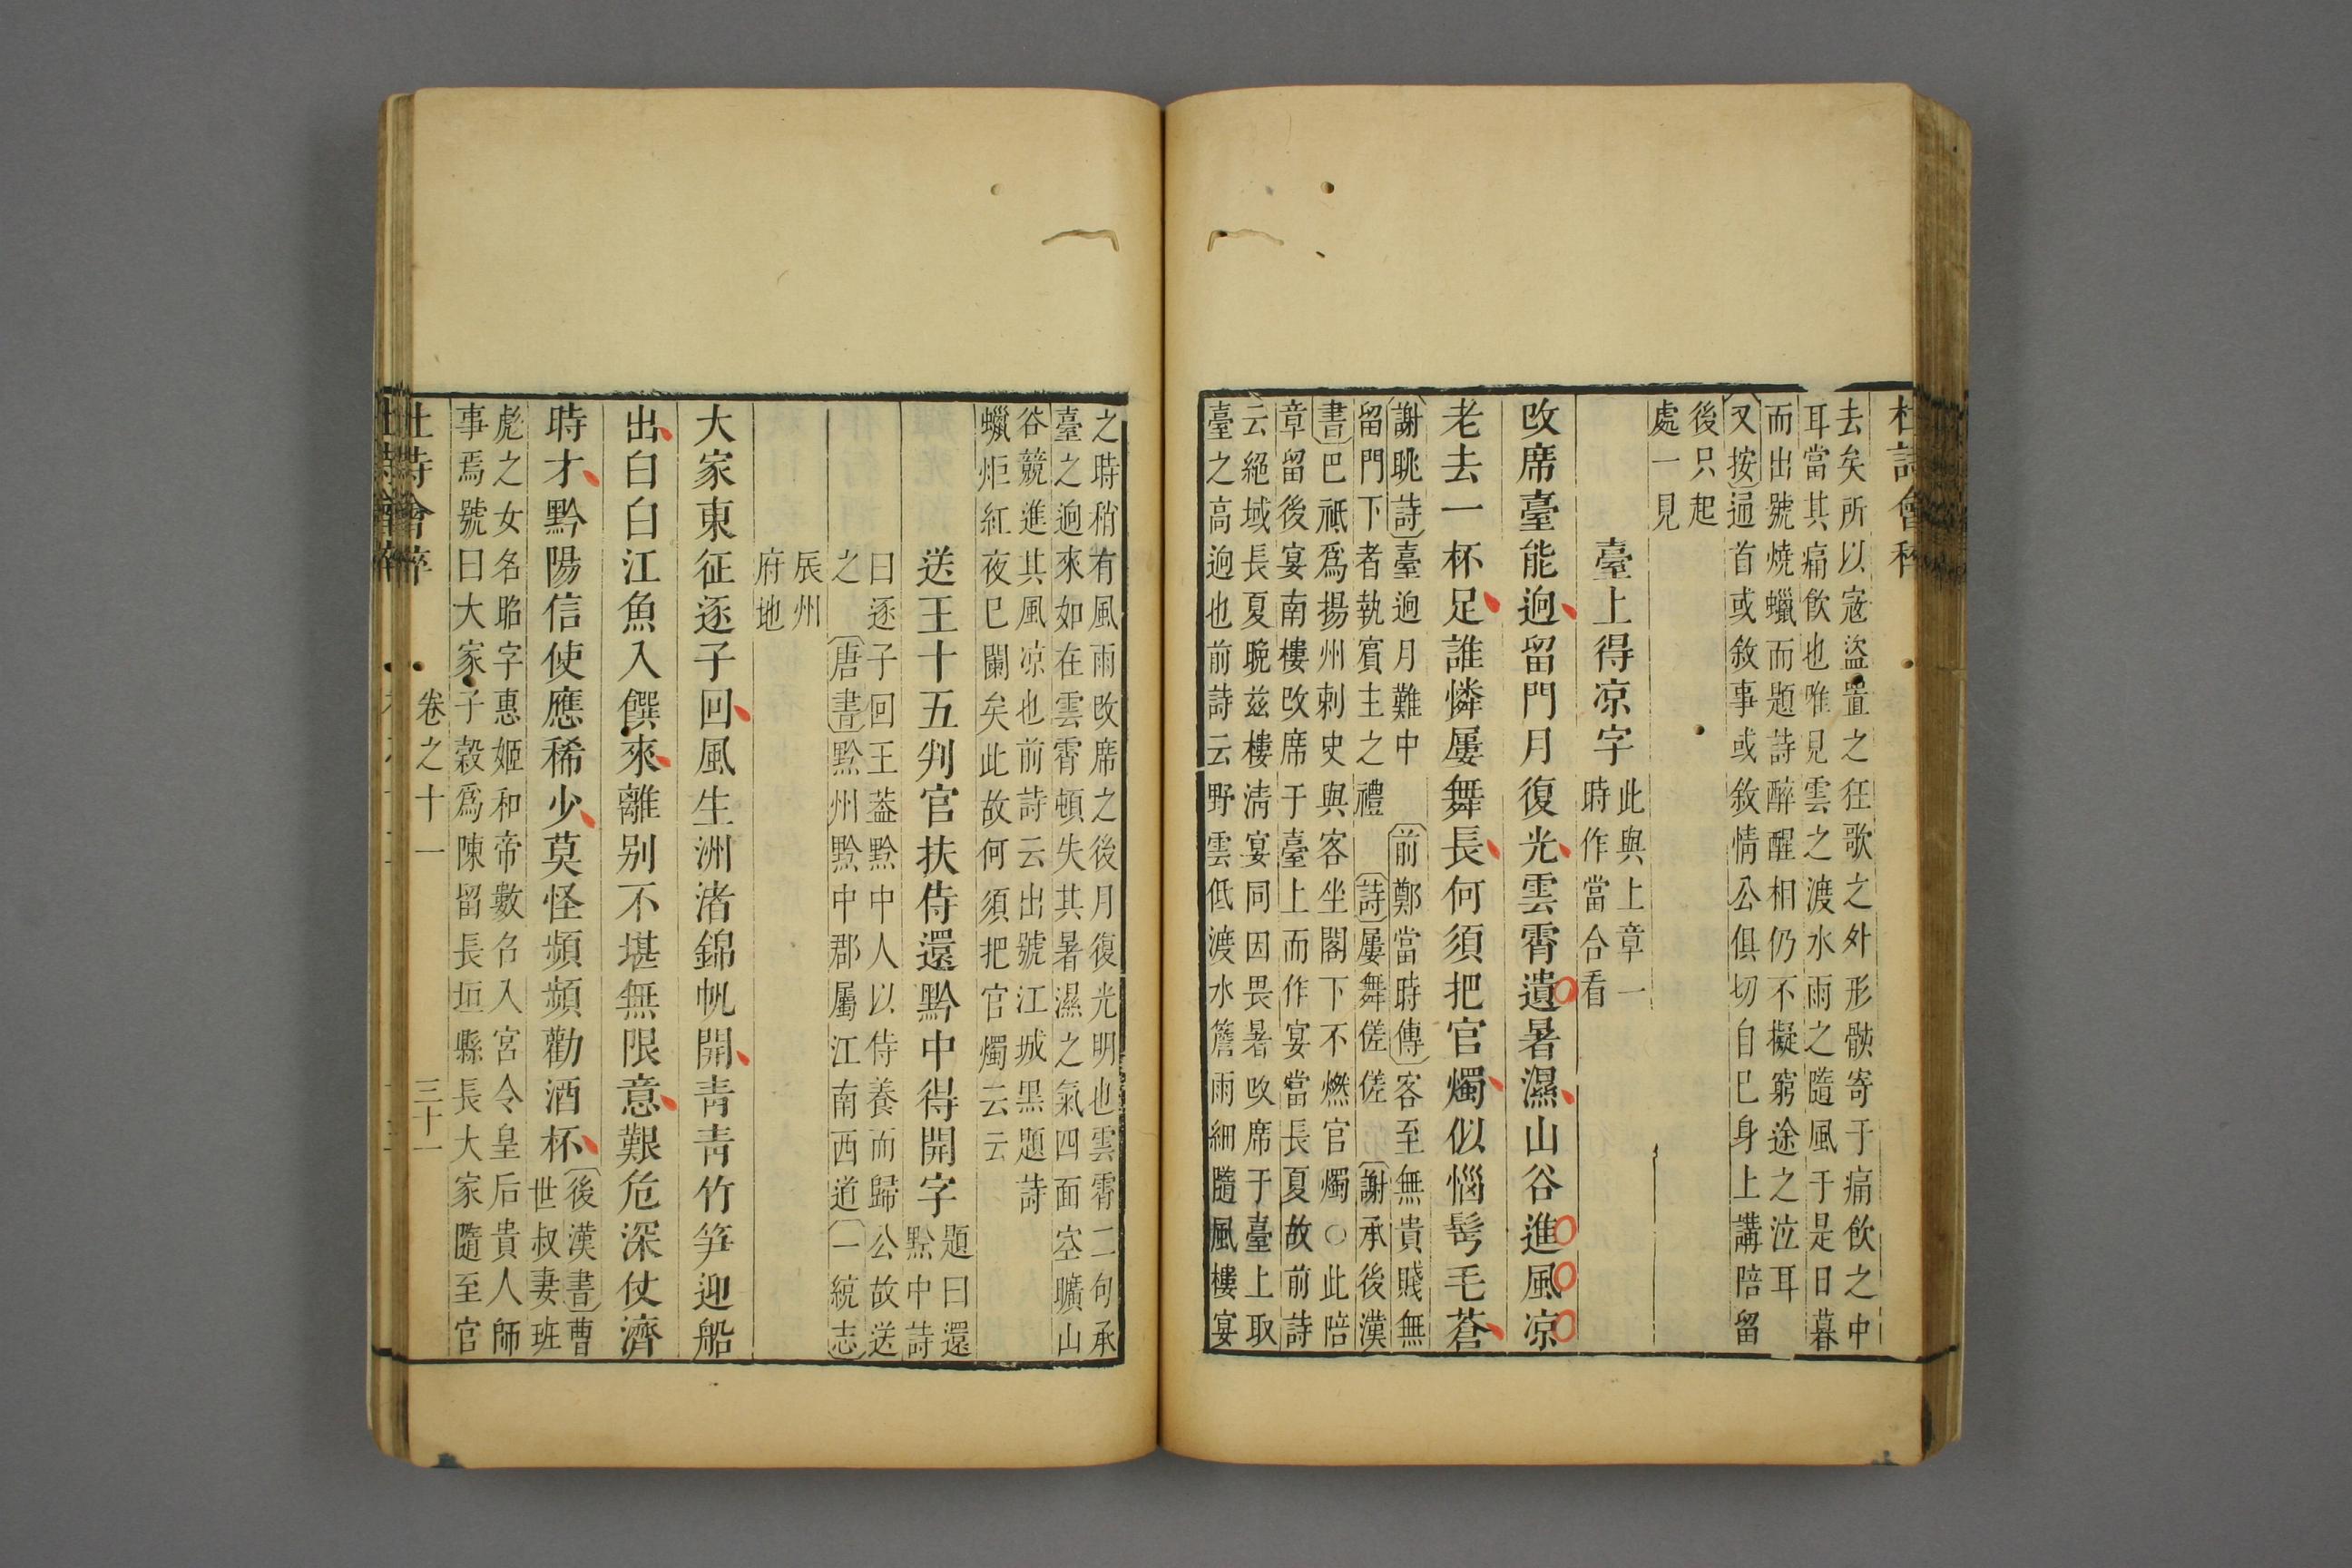 杜詩會稡
去矣所以寇盜置之狂歌之外形骸寄于痛飲之中
耳當其痛飲也唯見雲之渡水雨之隨風于是日暮
而出號燒蠟而題詩醉醒相仍不擬窮途之泣耳
又按通首或敘事或敘情公俱切自巳身上講陪留
後只起
處一見
臺上得凉字
此與上章一
時作當合看
改席臺能逈留門月復光雲霄遺暑濕山谷進風凉
老去一杯足誰憐屢舞長何須把官燭似惱髩毛蒼
謝眺詩臺逈月難中
留門下者執賓主之禮
前鄭當時傳客至無貴賤無
詩屢舞傞傞
謝承後漢
書巴祇爲揚州刺史與客坐閣下不燃官燭○此陪
章留後宴南樓改席于臺上而作宴當長夏故前詩
云絕域長夏晚兹樓淸宴同因畏暑改席于臺上取
臺之高逈也前詩云野雲低渡水簷雨細隨風樓宴
之時稍有風雨改席之後月復光明也雲霄二句承
臺之逈來如在雲霄頓失其暑濕之氣四面空曠山
谷競進其風凉也前詩云出號江城黑題詩
蠟炬紅夜巳闌矣此故何須把官燭云云
送王十五判官扶侍還黔中得開字
題曰還
黔中詩
曰逐子回王葢黔中人以侍養而歸公故送
之
唐書黔州黔中郡屬江南西道
一統志
辰州
府地
大家東征逐子回風生洲渚錦帆開靑靑竹笋迎船
出白白江魚入饌來離别不堪無限意艱危深仗濟
時才黔陽信使應稀少莫怪頻頻勸酒杯
後漢書曹
世叔妻班
彪之女名昭字惠姬和帝數召入宮令皇后貴人師
事焉號曰大家子穀爲陳留長垣縣長大家隨至官
杜詩會稡
卷之十一
三十一